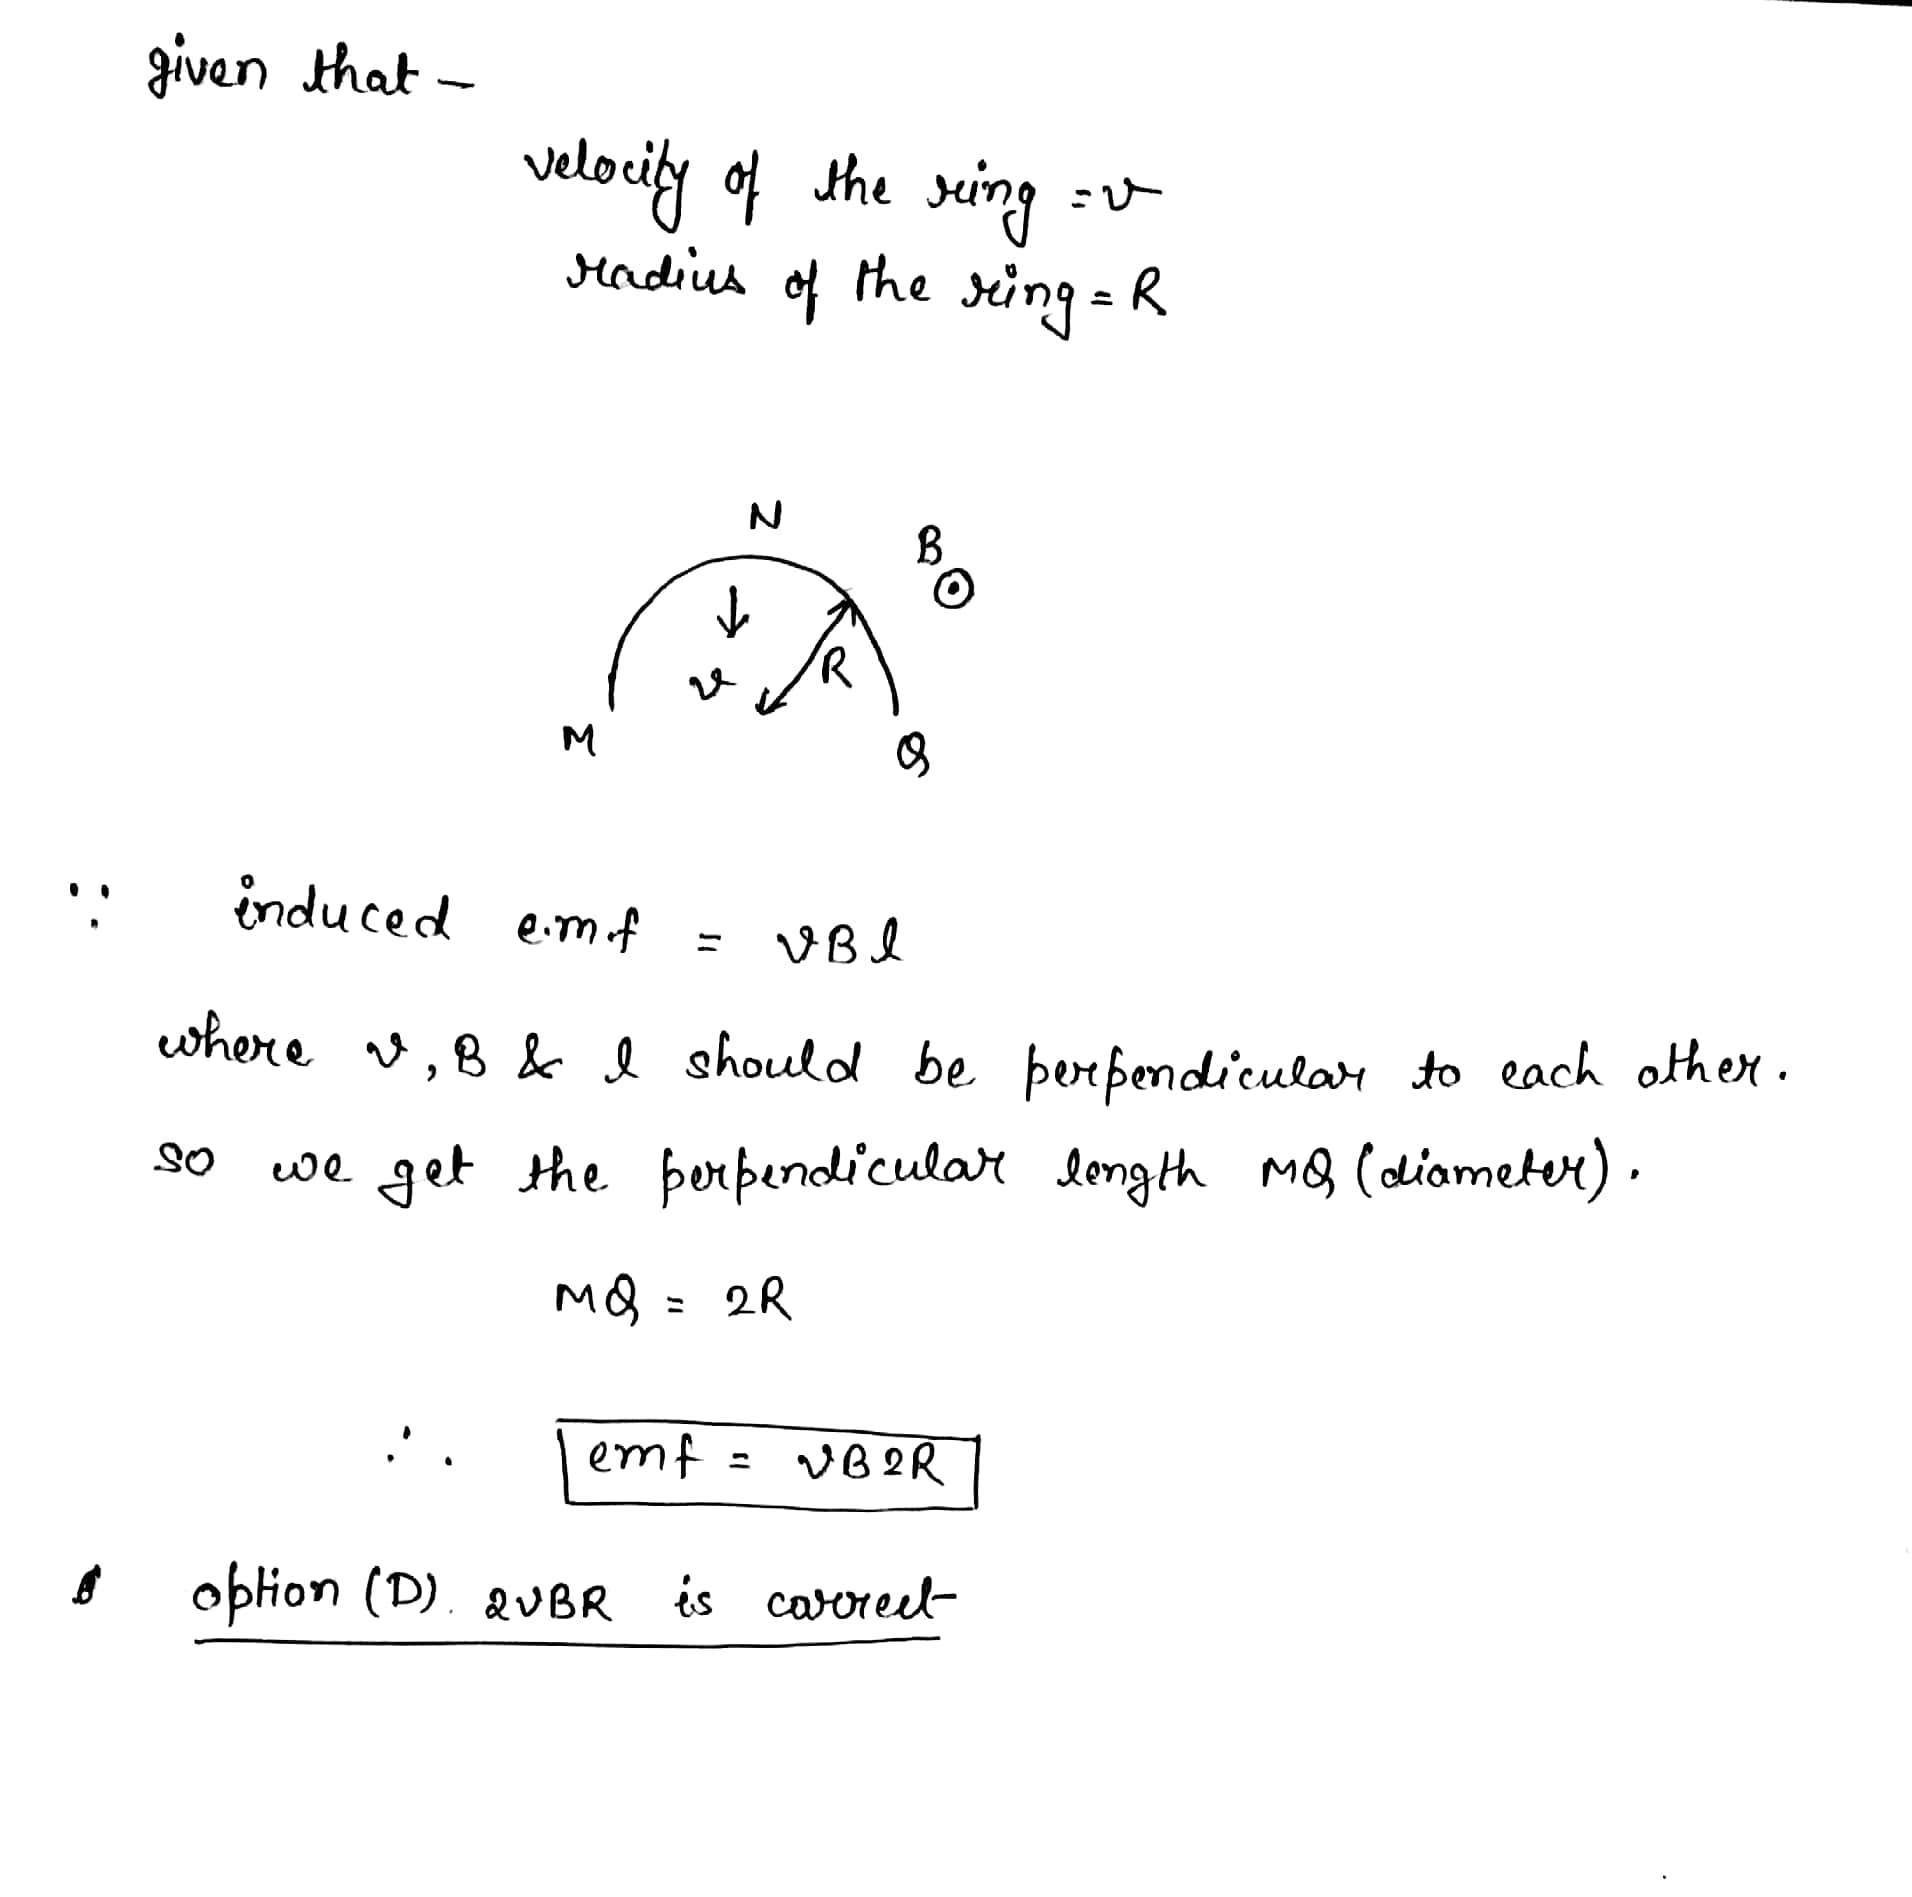 given that —
velocity of the ring = v
radius of the ring = R
N
B
v
R
M
Q
∵ induced emf = vBl
where v, B & l should be perpendicular to each other.
so we get the perpendicular length MQ (diameter).
MQ = 2R
∴ emf = vB2R
option (D). 2vBR is correct